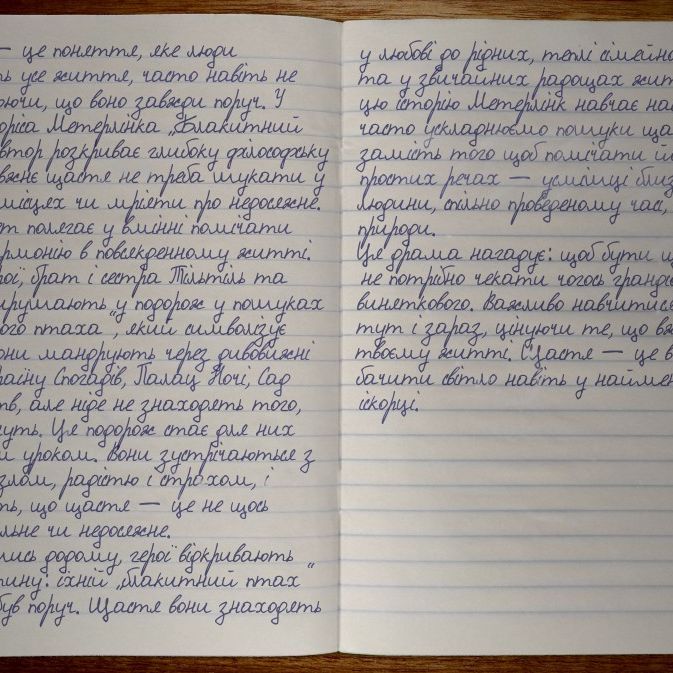 — це поняття, яке люди
ть усе життя, часто навіть не
ючи, що воно завжди поруч. У
оріса Метерлінка „Блакитний
втор розкриває глибоку філософську
вжнє щастя не треба шукати у
місцях чи мріяти про недосяжне.
ет полягає у вмінні помічати
рмонію в повсякденному житті.
рої, брат і сестра Тільтіль та
ирушають у подорож у пошуках
ого птаха“, який символізує
они мандрують через дивовижні
раїну Спогадів, Палац Ночі, Сад
тв, але ніде не знаходять того,
уть. Ця подорож стає для них
м уроком. Вони зустрічаються з
злом, радістю і страхом, і
ть, що щастя — це не щось
льне чи недосяжне.
ись додому, герої відкривають
тину: їхній „блакитний птах“
був поруч. Щастя вони знаходять
у любові до рідних, теплі сімейно
та у звичайних радощах жит
цю історію Метерлінк навчає нас
часто ускладнюємо пошуки ща
замість того щоб помічати й
простих речах — усмішці близ
людини, спільно проведеному часі,
природи.
Ця драма нагадує: щоб бути щ
не потрібно чекати чогось гранді
виняткового. Важливо навчитися
тут і зараз, цінуючи те, що вж
твоєму житті. Щастя — це в
бачити світло навіть у наймен
іскорці.